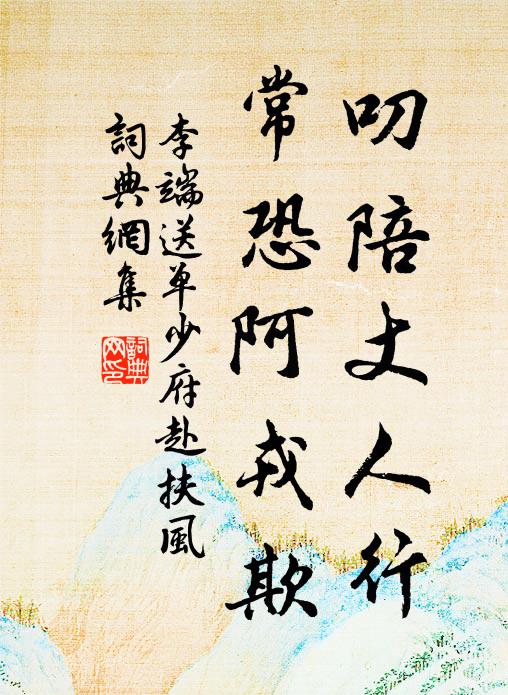 叨陪丈人行
常恐阿戎欺
李端送单少府赴扶風
詞典網集
詞典網印